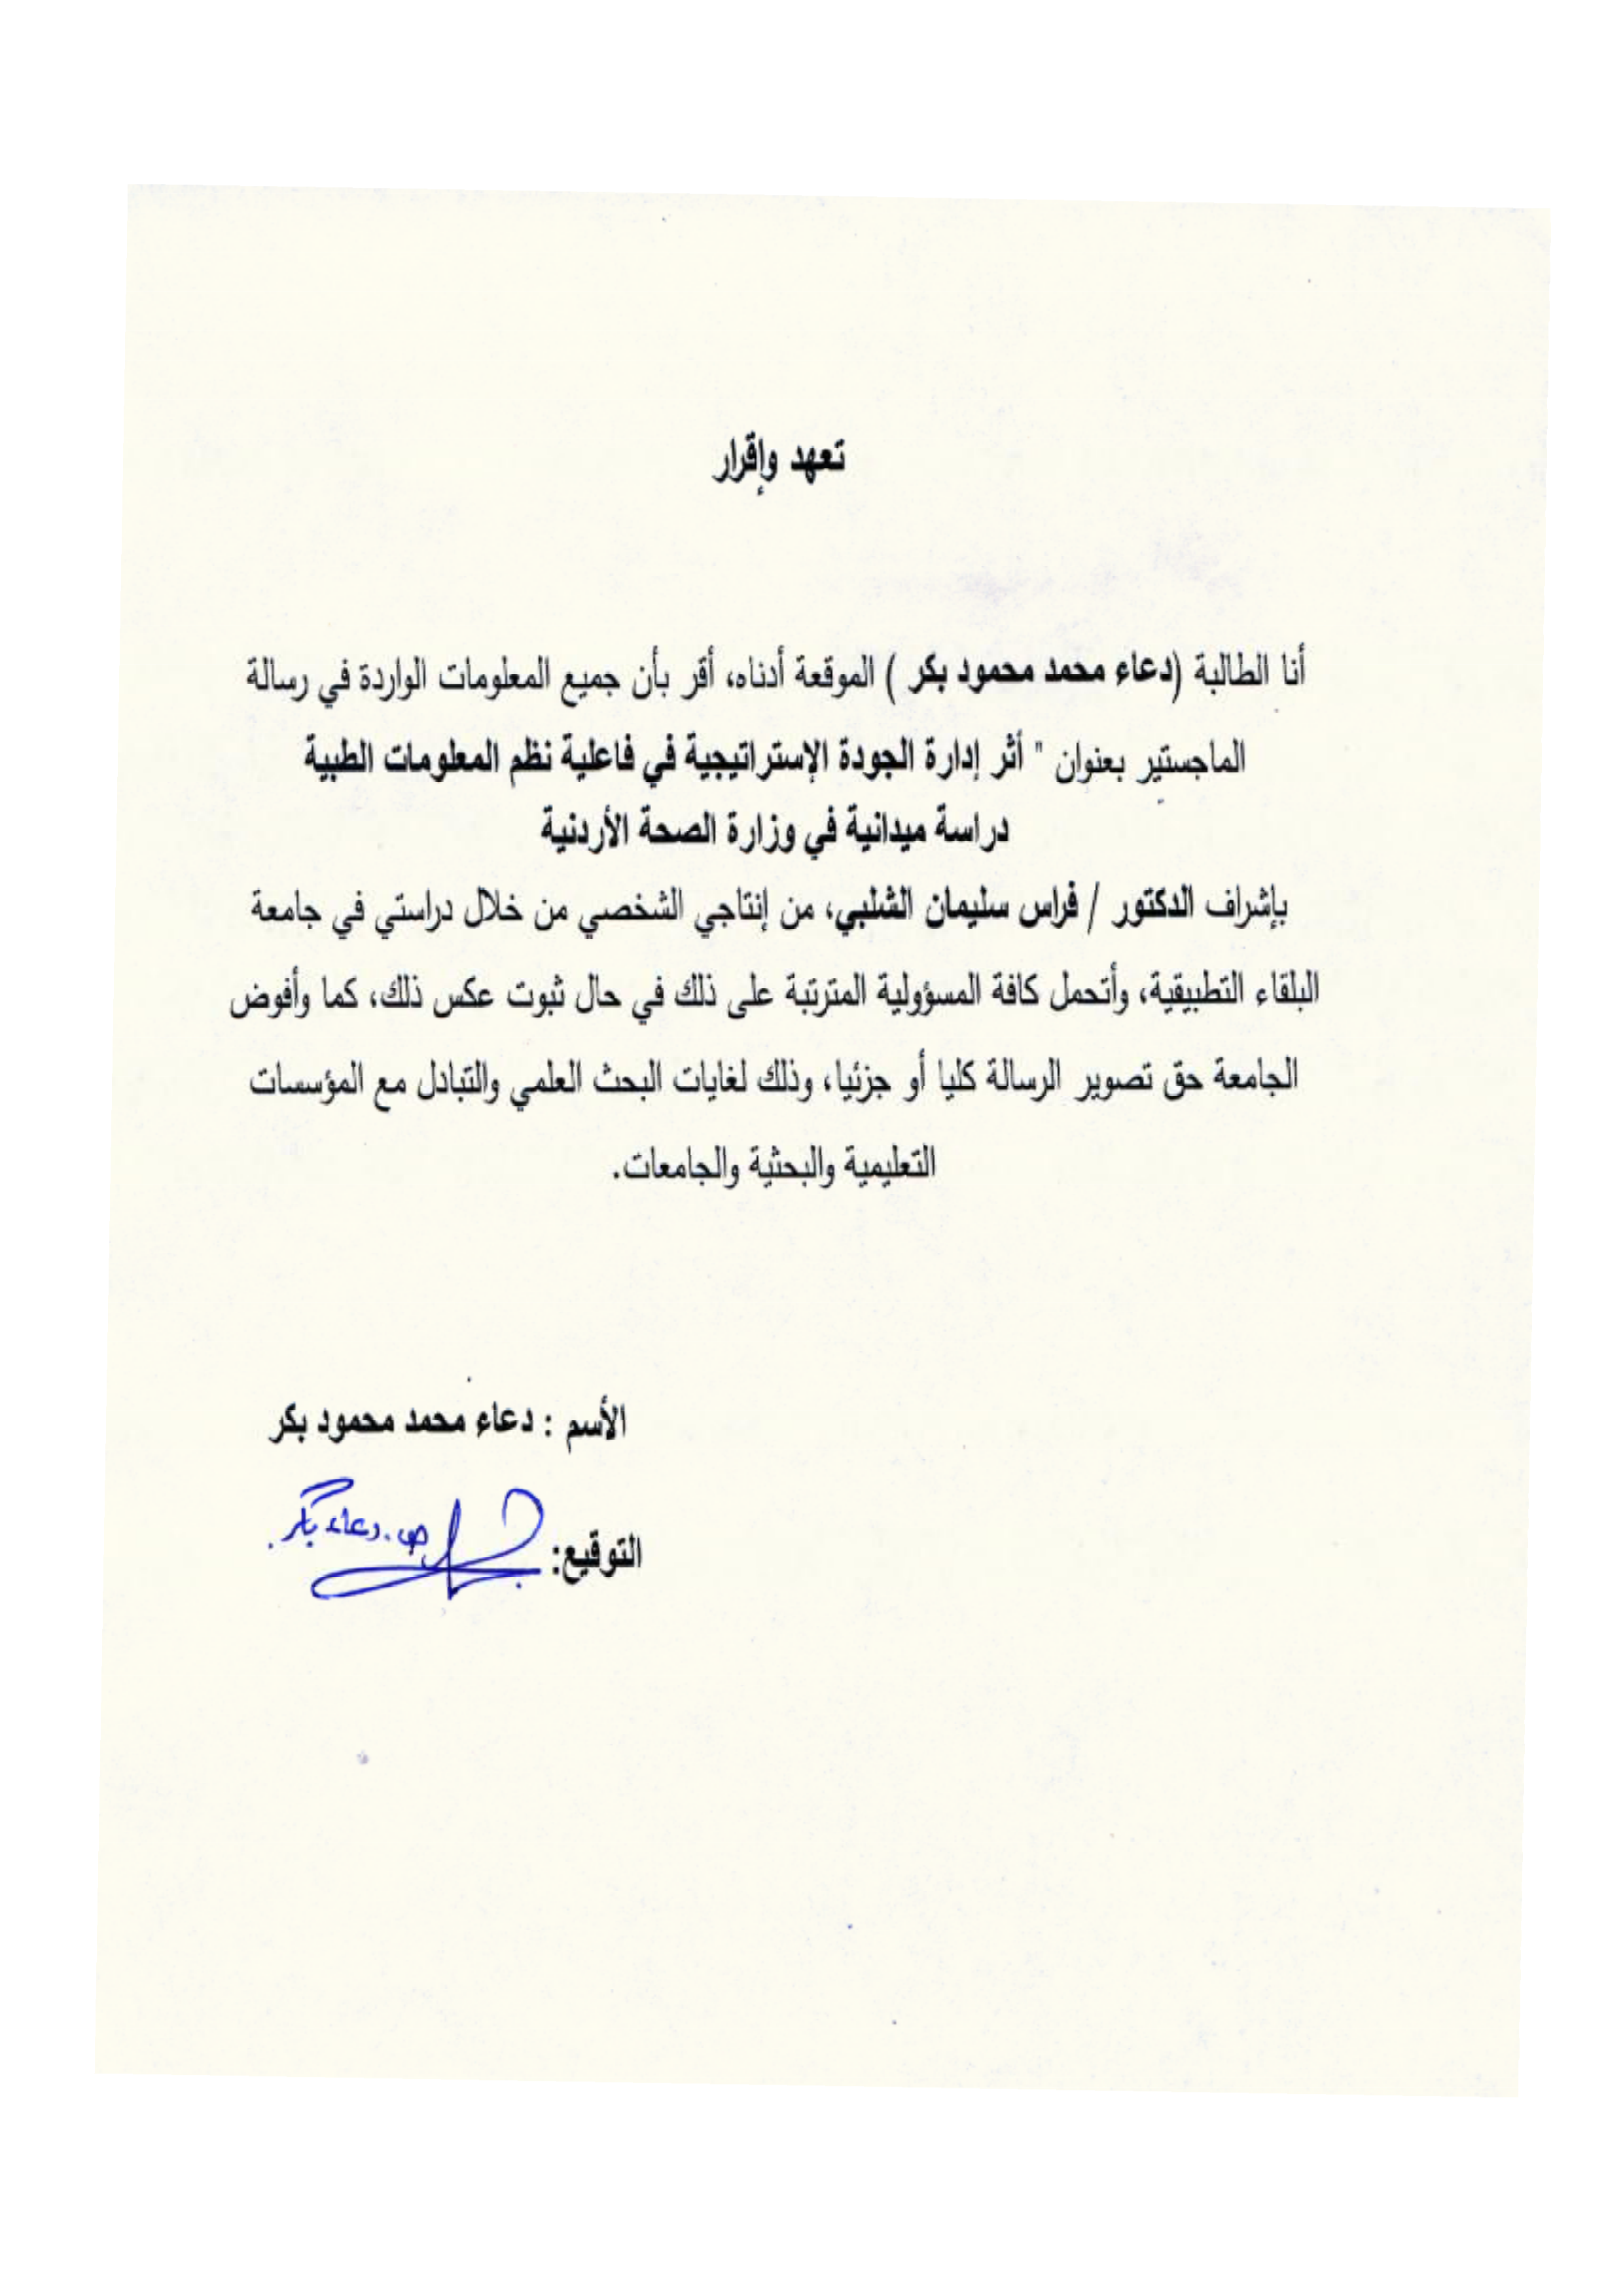 تعهد وإقرار
أنا الطالبة (دعاء محمد محمود بكر ) الموقعة أدناه، أقر بأن جميع المعلومات الواردة في رسالة
الماجستير بعنوان " أثر إدارة الجودة الإستراتيجية في فاعلية نظم المعلومات الطبية
دراسة ميدانية في وزارة الصحة الأردنية
بإشراف الدكتور / فراس سليمان الشلبي، من إنتاجي الشخصي من خلال دراستي في جامعة
البلقاء التطبيقية، وأتحمل كافة المسؤولية المترتبة على ذلك في حال ثبوت عكس ذلك، كما وأفوض
الجامعة حق تصوير الرسالة كليا أو جزئيا، وذلك لغايات البحث العلمي والتبادل مع المؤسسات
التعليمية والبحثية والجامعات.
الأسم : دعاء محمد محمود بكر
التوقيع: ص.دعاء بكر.